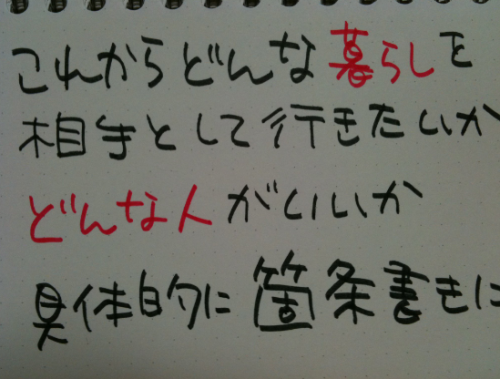 これからどんな暮らしを
相手として行きたいか
どんな人がいいか
具体的に箇条書きに